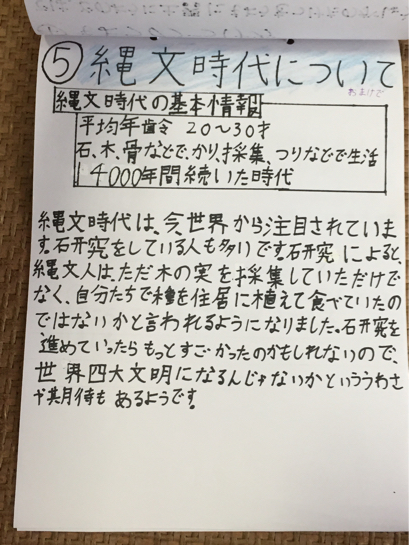 ⑤縄文時代について
おまけで
縄文時代の基本情報
平均年齢 20～30才
石、木、骨などで、かり、採集、つりなどで生活
14000年間続いた時代
縄文時代は、今世界から注目されていま
す。研究をしている人も多いです。研究によると、
縄文人は、ただ木の実を採集していただけで
なく、自分たちで種を住居に植えて食べていたの
ではないかと言われるようになりました。研究を
進めていったらもっとすごかったのかもしれないので、
世界四大文明になるんじゃないかといううわさ
や期待もあるようです。